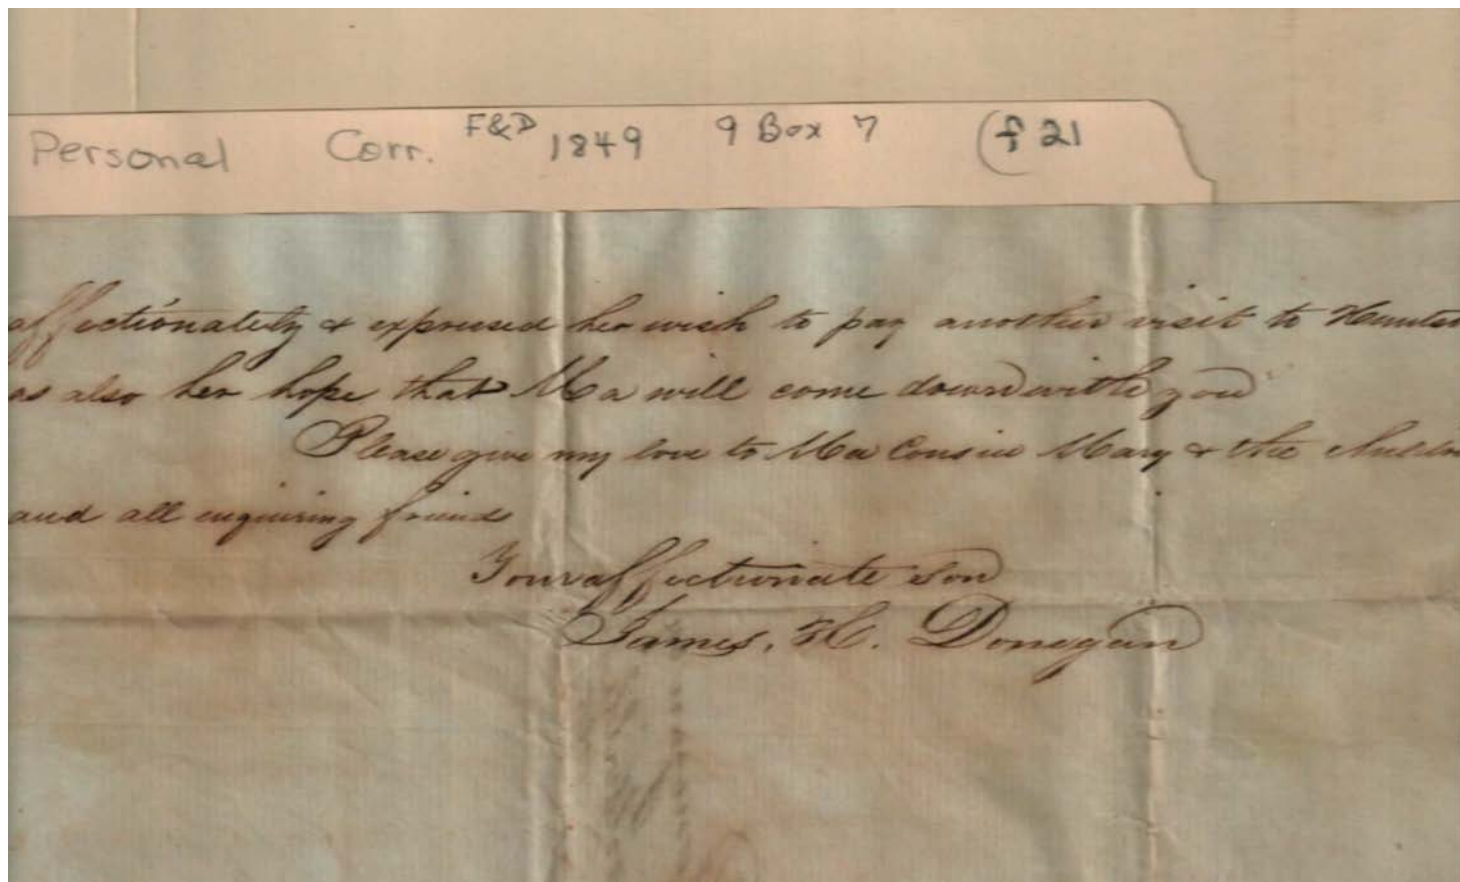 Personal Corr. F&D 1849 9 Box 7 (f 21
affectionately & expressed her wish to pay another visit to
as also her hope that Ma will come down with you
Please give my love to Ma Cousin Mary & the
and all enquiring friends
Your affectionate son
James. H. Donegan